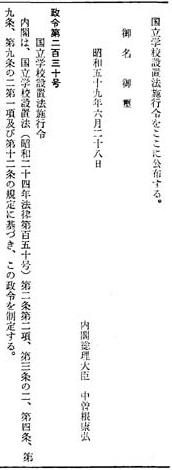 国立学校設置法施行令をここに公布する。
御名御璽
昭和五十九年六月二十八日
内閣総理大臣 中曽根康弘
政令第二百三十号
国立学校設置法施行令
内閣は、国立学校設置法（昭和二十四年法律第百五十号）第二条第二項、第三条の二、第四条、第
九条、第九条の二第一項及び第十二条の規定に基づき、この政令を制定する。